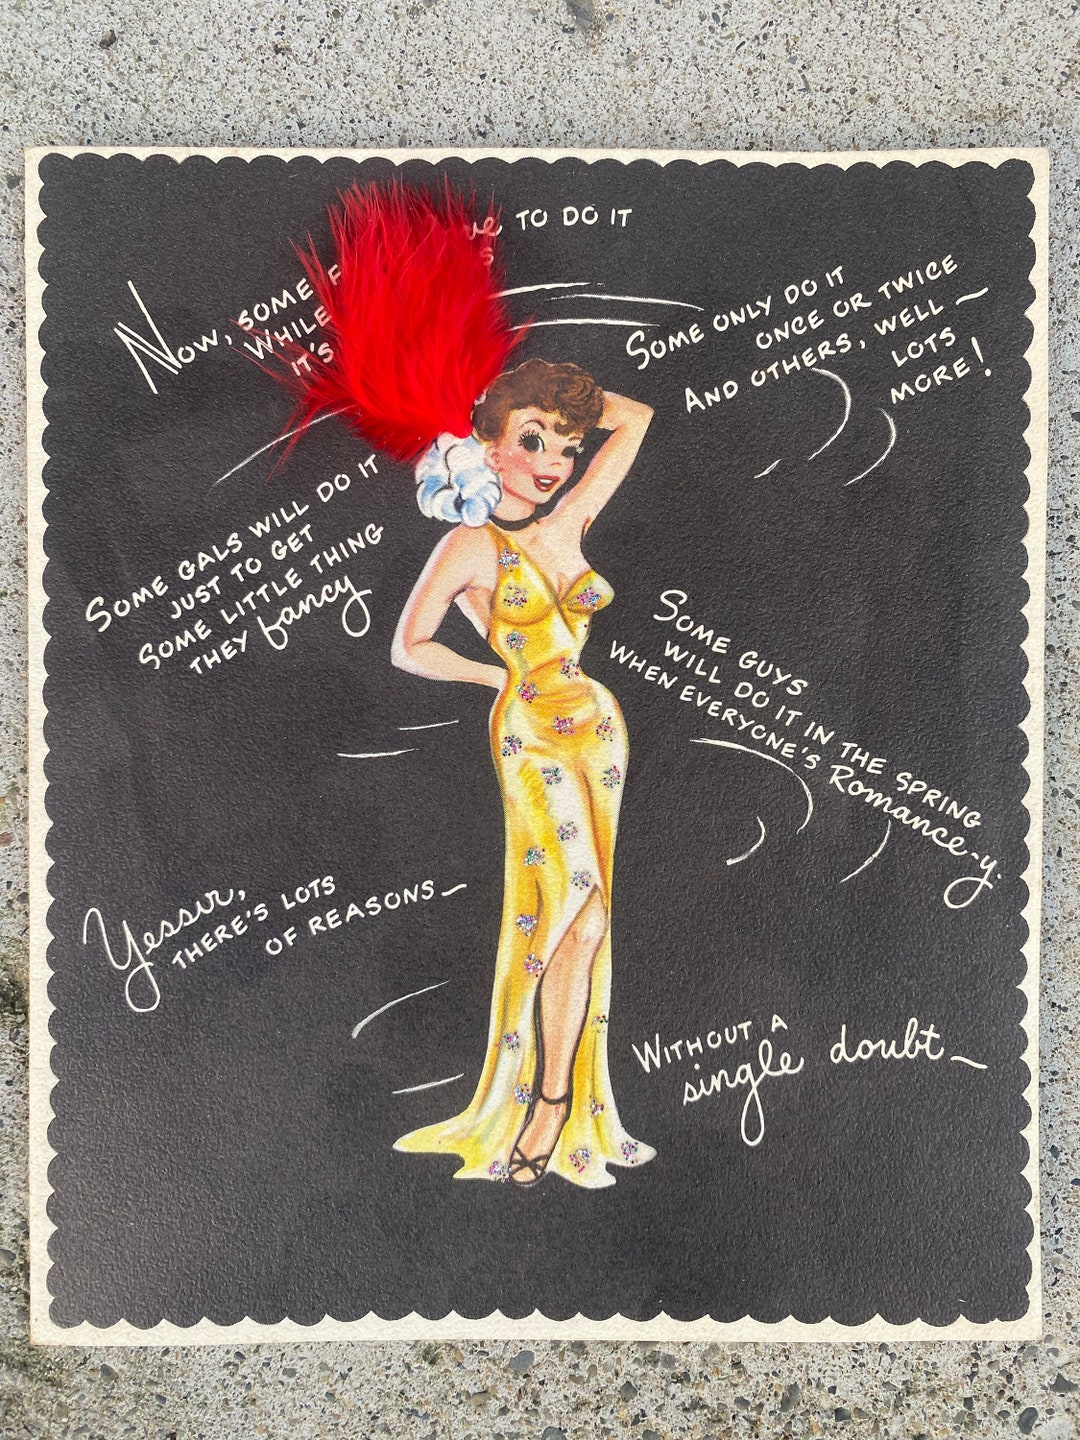 Now, SOME TO DO IT
WHILE
IT'S
SOME ONLY DO IT
ONCE OR TWICE
AND OTHERS, WELL —
LOTS
MORE!
SOME GALS WILL DO IT
JUST TO GET
SOME LITTLE THING
THEY fancy
SOME GUYS
WILL DO IT IN THE SPRING
WHEN EVERYONE'S Romance-y.
Yessir,
THERE'S LOTS
OF REASONS —
WITHOUT A
single doubt —